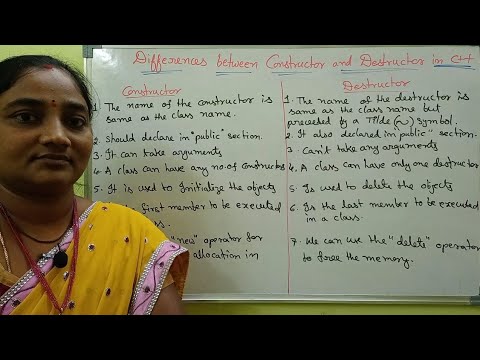 Differences between Constructor and Destructor in C++
Constructor
1. The name of the constructor is
same as the class name.
2. Should declare in "public" section.
3. It can take arguments
4. A class can have any no. of Constructors
5. It is used to Initialize the objects
first member to be executed
ss.
"new" operator for
allocation in
Destructor
1. The name of the destructor is
same as the class name but
preceded by a Tilde (~) symbol.
2. It also declared in "public" section.
3. Can't take any arguments
4. A class can have only one destructor
5. Is used to delete the objects
6. Is the last member to be executed
in a class.
7. We can use the "delete" operator
to free the memory.